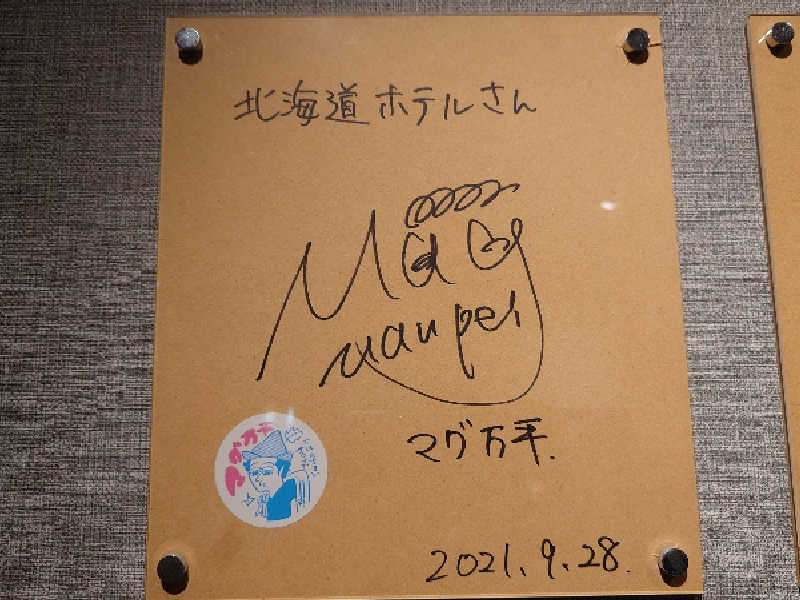 北海道ホテルさん
Mag
manpei
マグ万平.
2021.9.28.
マグ万平